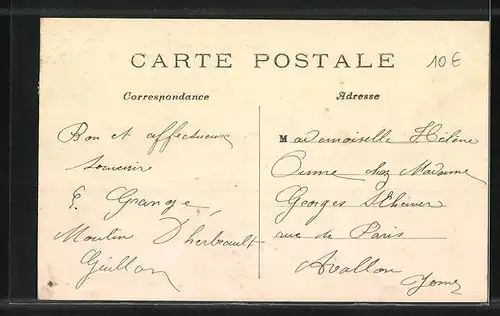 CARTE POSTALE
10€
Correspondance
Adresse
Bon et affectueux
souvenir
E. Grangé
Moulin D'herbeault
Guillon
Mademoiselle Hélène
chez Madame
Georges
rue de Paris
Avallon
Yonne